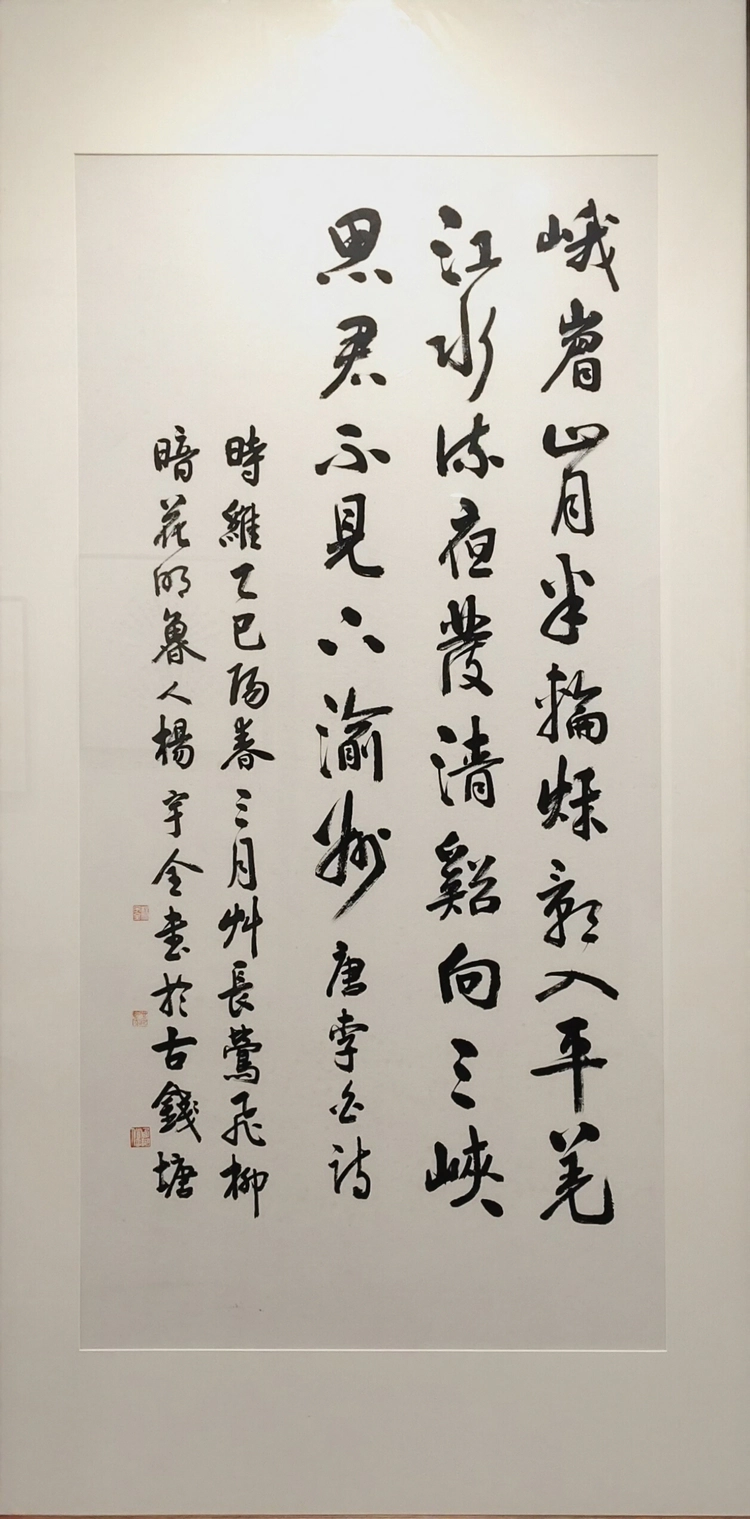 峨眉山月半輪秋影入平羌
江水流夜發清谿向三峽
思君不見下渝州唐李白詩
時維乙巳陽春三月艸長鶯飛柳
暗花明魯人楊宇全書於古錢塘